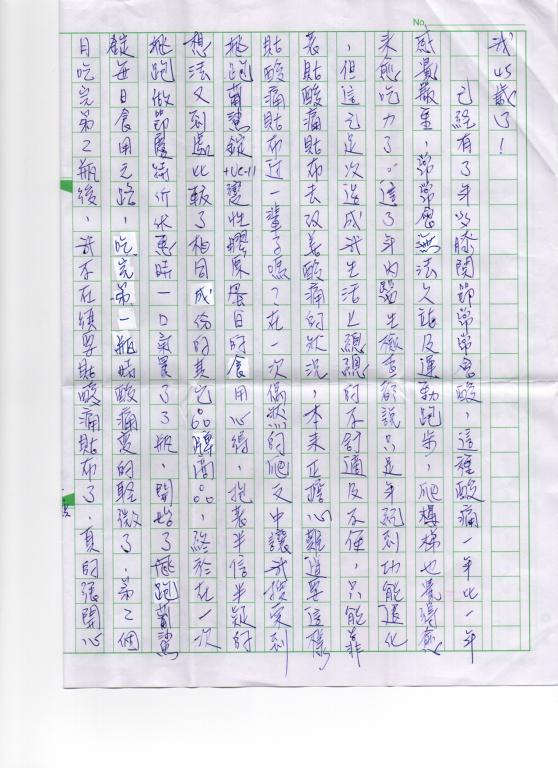 No.
我45歲了!
已經有3年以膝關節常常會酸，這種酸痛一年比一年
感覺嚴重，常常會無法久站及運動跑步，爬樓梯也覺得愈
來愈吃力了。這3年內醫生檢查都說只是年紀到功能退化
，但這已造成我生活上總總的不舒適及不便，只能靠
著貼酸痛貼布去改善酸痛的狀況，本來正擔心難道要這樣
貼酸痛貼布過一輩子嗎？在一次偶然的爬文中讓我搜索到
挑跑葡鯊錠+UC-II變性膠原蛋白的食用心得，抱著半信半疑的
想法又到處比較了相同成份的其它品牌商品，終於在一次
挑跑做節慶特價優惠時一口氣買了3瓶，開始了挑跑葡鯊
錠每日食用之路，吃完第一瓶酸痛變的輕微了，第2個
月吃完第2瓶後，我不在須要貼酸痛貼布了，真的很開心